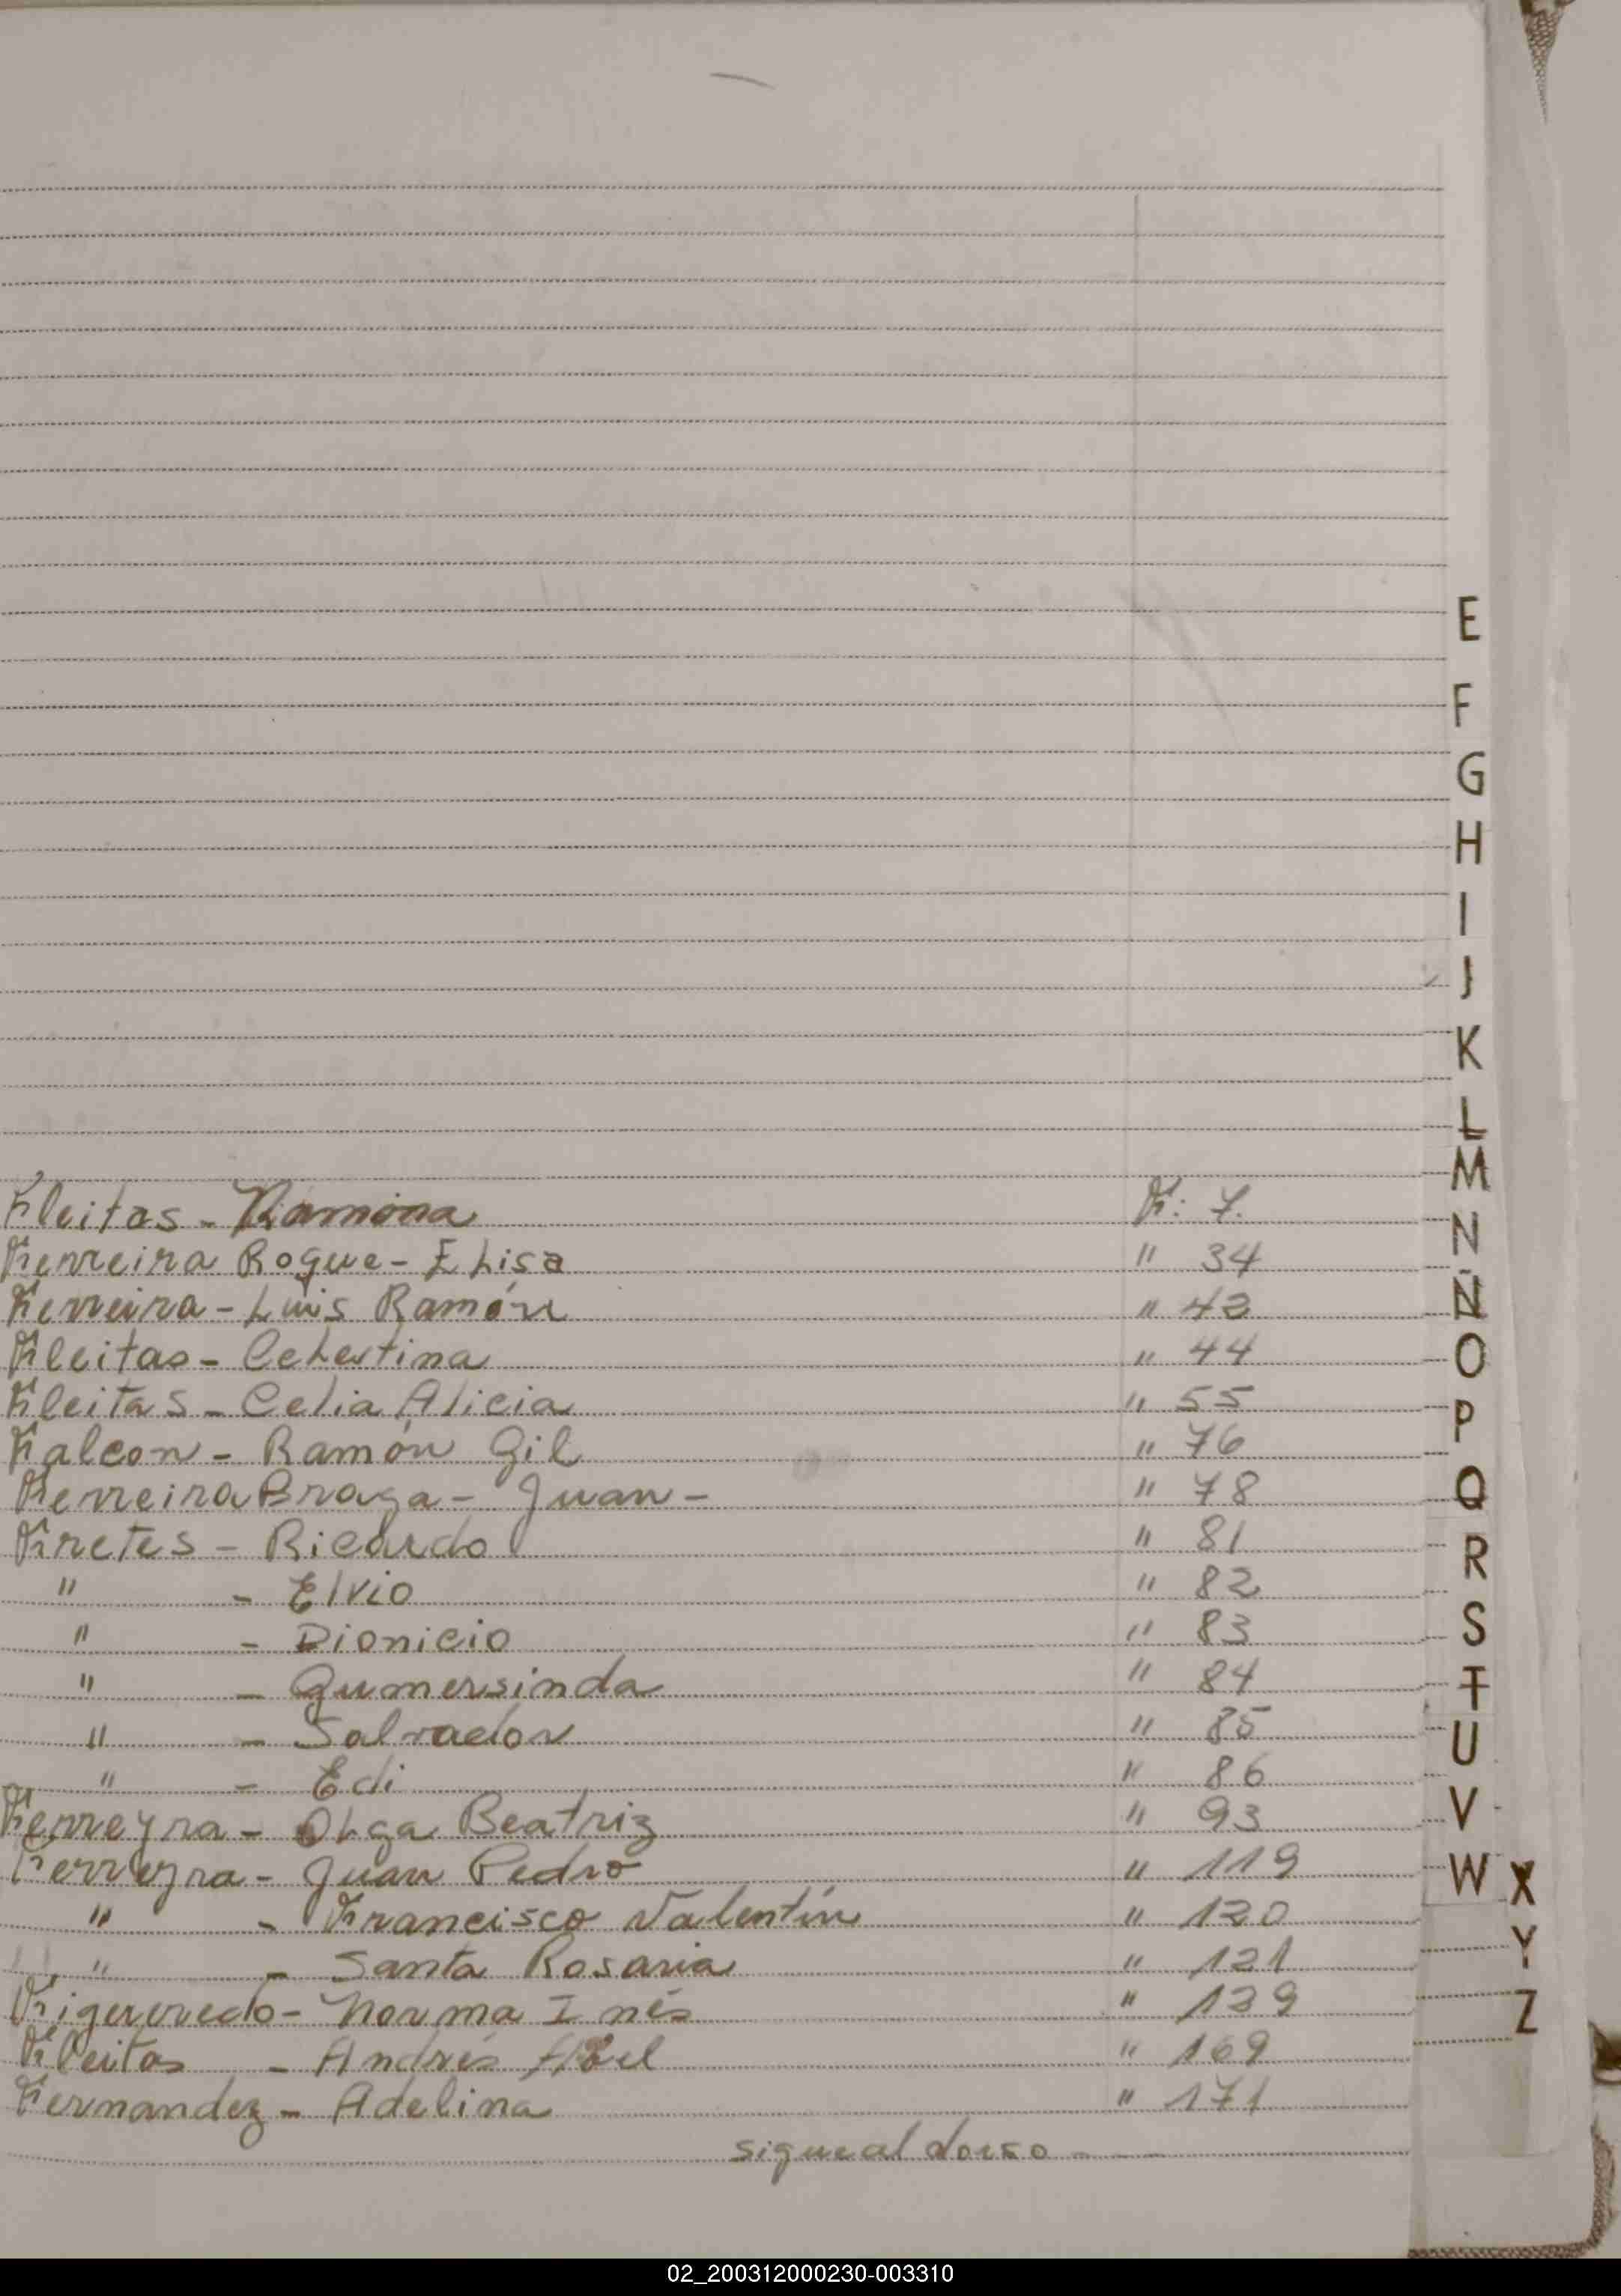 E
F
G
H
I
J
K
L
M
N
Ñ
O
P
Q
R
S
T
U
V
W X
Y
Z
Fleitas - Ramona F: 7.
Ferreira Roque - Elisa " 34
Ferreira - Luis Ramón " 42
Fleitas - Celestina " 44
Fleitas - Celia Alicia " 55
Falcon - Ramón Gil " 76
Ferreira Braga - Juan - " 78
Fretes - Ricardo " 81
" - Elvio " 82
" - Dionicio " 83
" - Gumersinda " 84
" - Salvador " 85
" - Edi " 86
Ferreyra - Olga Beatriz " 93
Ferreyra - Juan Pedro " 119
" - Francisco Valentín " 120
" - Santa Rosaria " 121
Figeredo - Norma Inés " 139
Fleitas - Andrés Abel " 169
Fernandez - Adelina " 171
sigue al dorso -
02_200312000230-003310